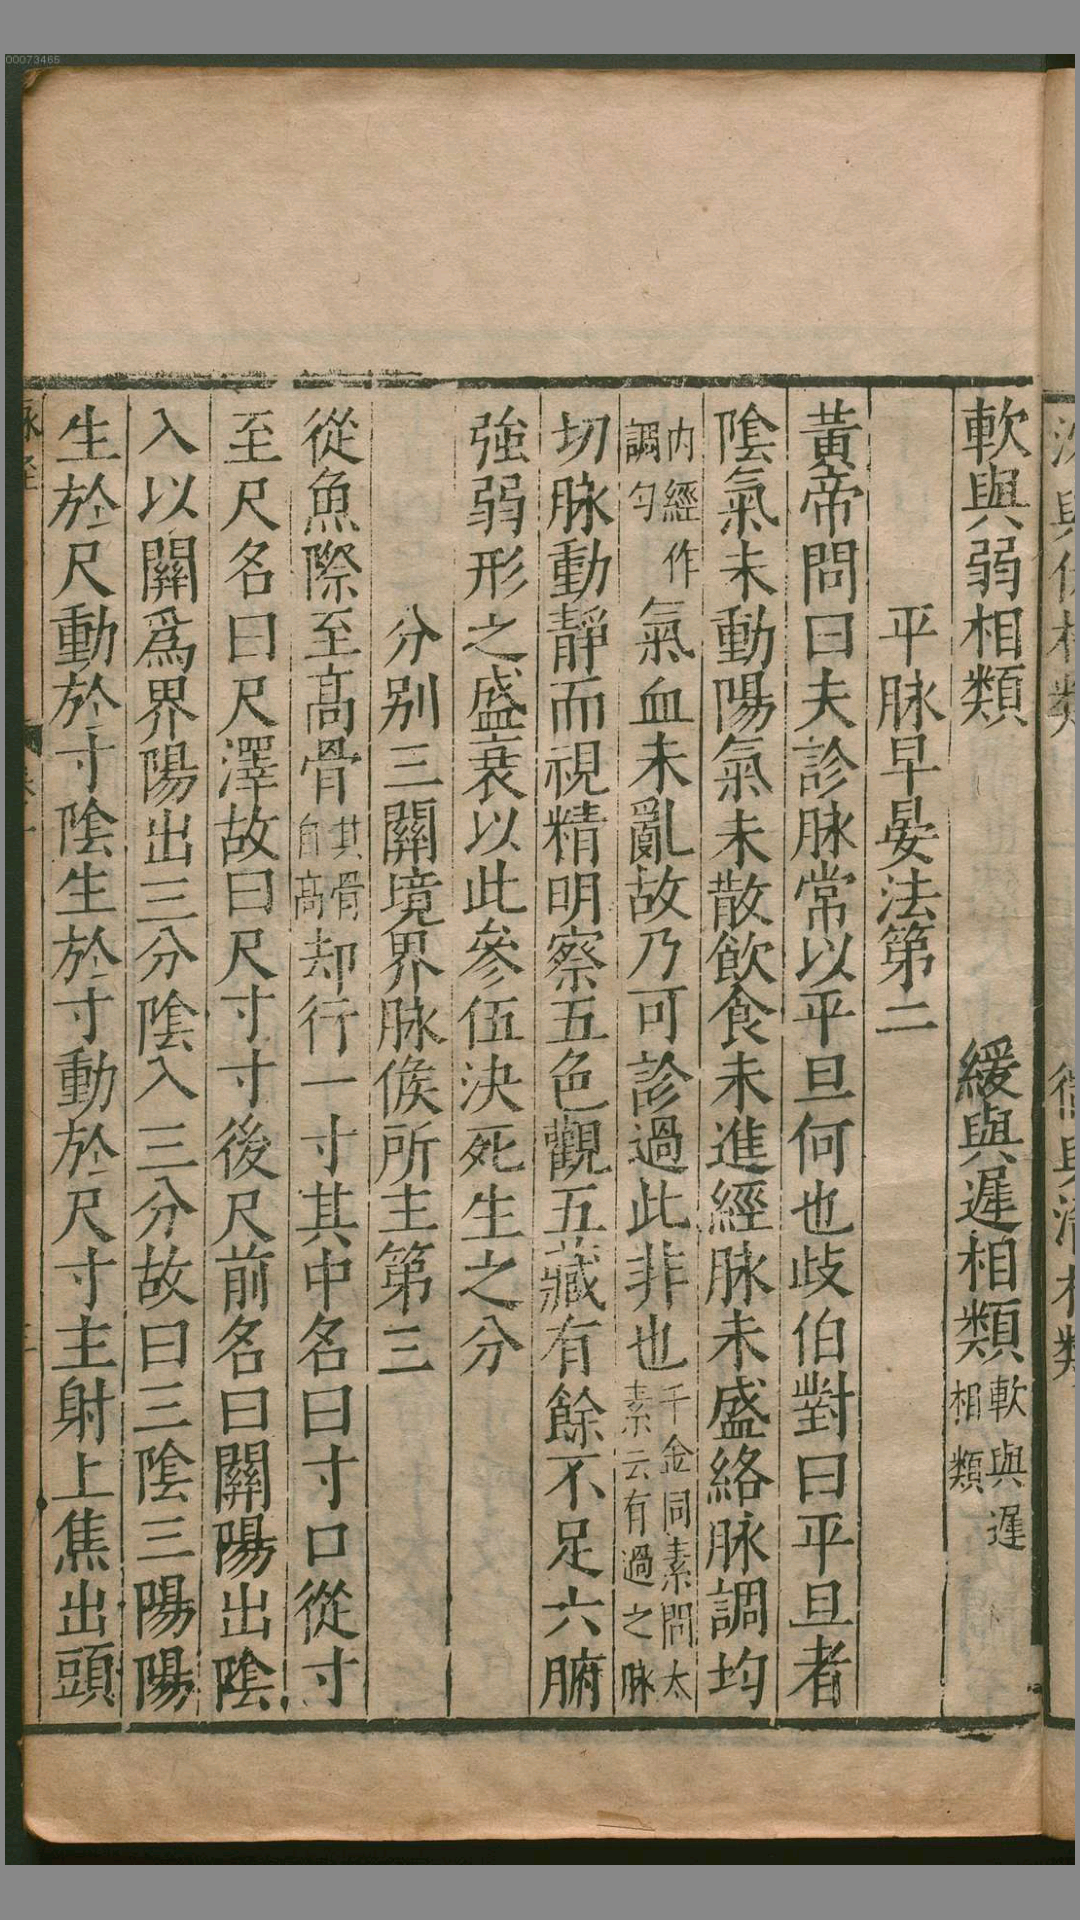 00073465
軟與弱相類 緩與遲相類 軟與遲相類
平脉早晏法第二
黃帝問曰夫診脉常以平旦何也歧伯對曰平旦者
陰氣未動陽氣未散飲食未進經脉未盛絡脉調均
内經作調勻 氣血未亂故乃可診過此非也 千金同素問太素云有過之脉
切脉動靜而視精明察五色觀五藏有餘不足六腑
強弱形之盛衰以此參伍決死生之分
分别三關境界脉候所主第三
從魚際至高骨 其骨自高 却行一寸其中名曰寸口從寸
至尺名曰尺澤故曰尺寸寸後尺前名曰關陽出陰
入以關爲界陽出三分陰入三分故曰三陰三陽陽
生於尺動於寸陰生於寸動於尺寸主射上焦出頭